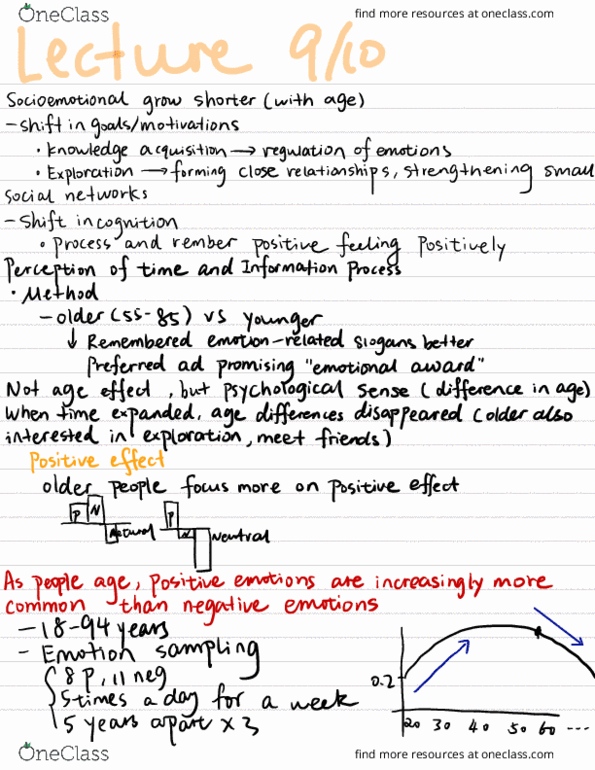 OneClass
find more resources at oneclass.com
Lecture 9/10
Socioemotional grow shorter (with age)
- shift in goals/motivations
• knowledge acquisition → regulation of emotions
• Exploration → forming close relationships, strengthening small
social networks
- Shift in cognition
• Process and rember positive feeling positively
Perception of time and Information Process
• Method
- older (55-85) vs younger
↓ Remembered emotion-related slogans better
Preferred ad promising "emotional award"
Not age effect, but psychological sense (difference in age)
When time expanded, age differences disappeared (older also
interested in exploration, meet friends)
Positive effect
older people focus more on positive effect
P N P N
Neutral
As people age, positive emotions are increasingly more
common than negative emotions
- 18-94 years
- Emotion sampling
8 P, 11 neg
5 times a day for a week
5 years apart x 3
0.2
20 30 40 50 60 ....
OneClass
find more resources at oneclass.com